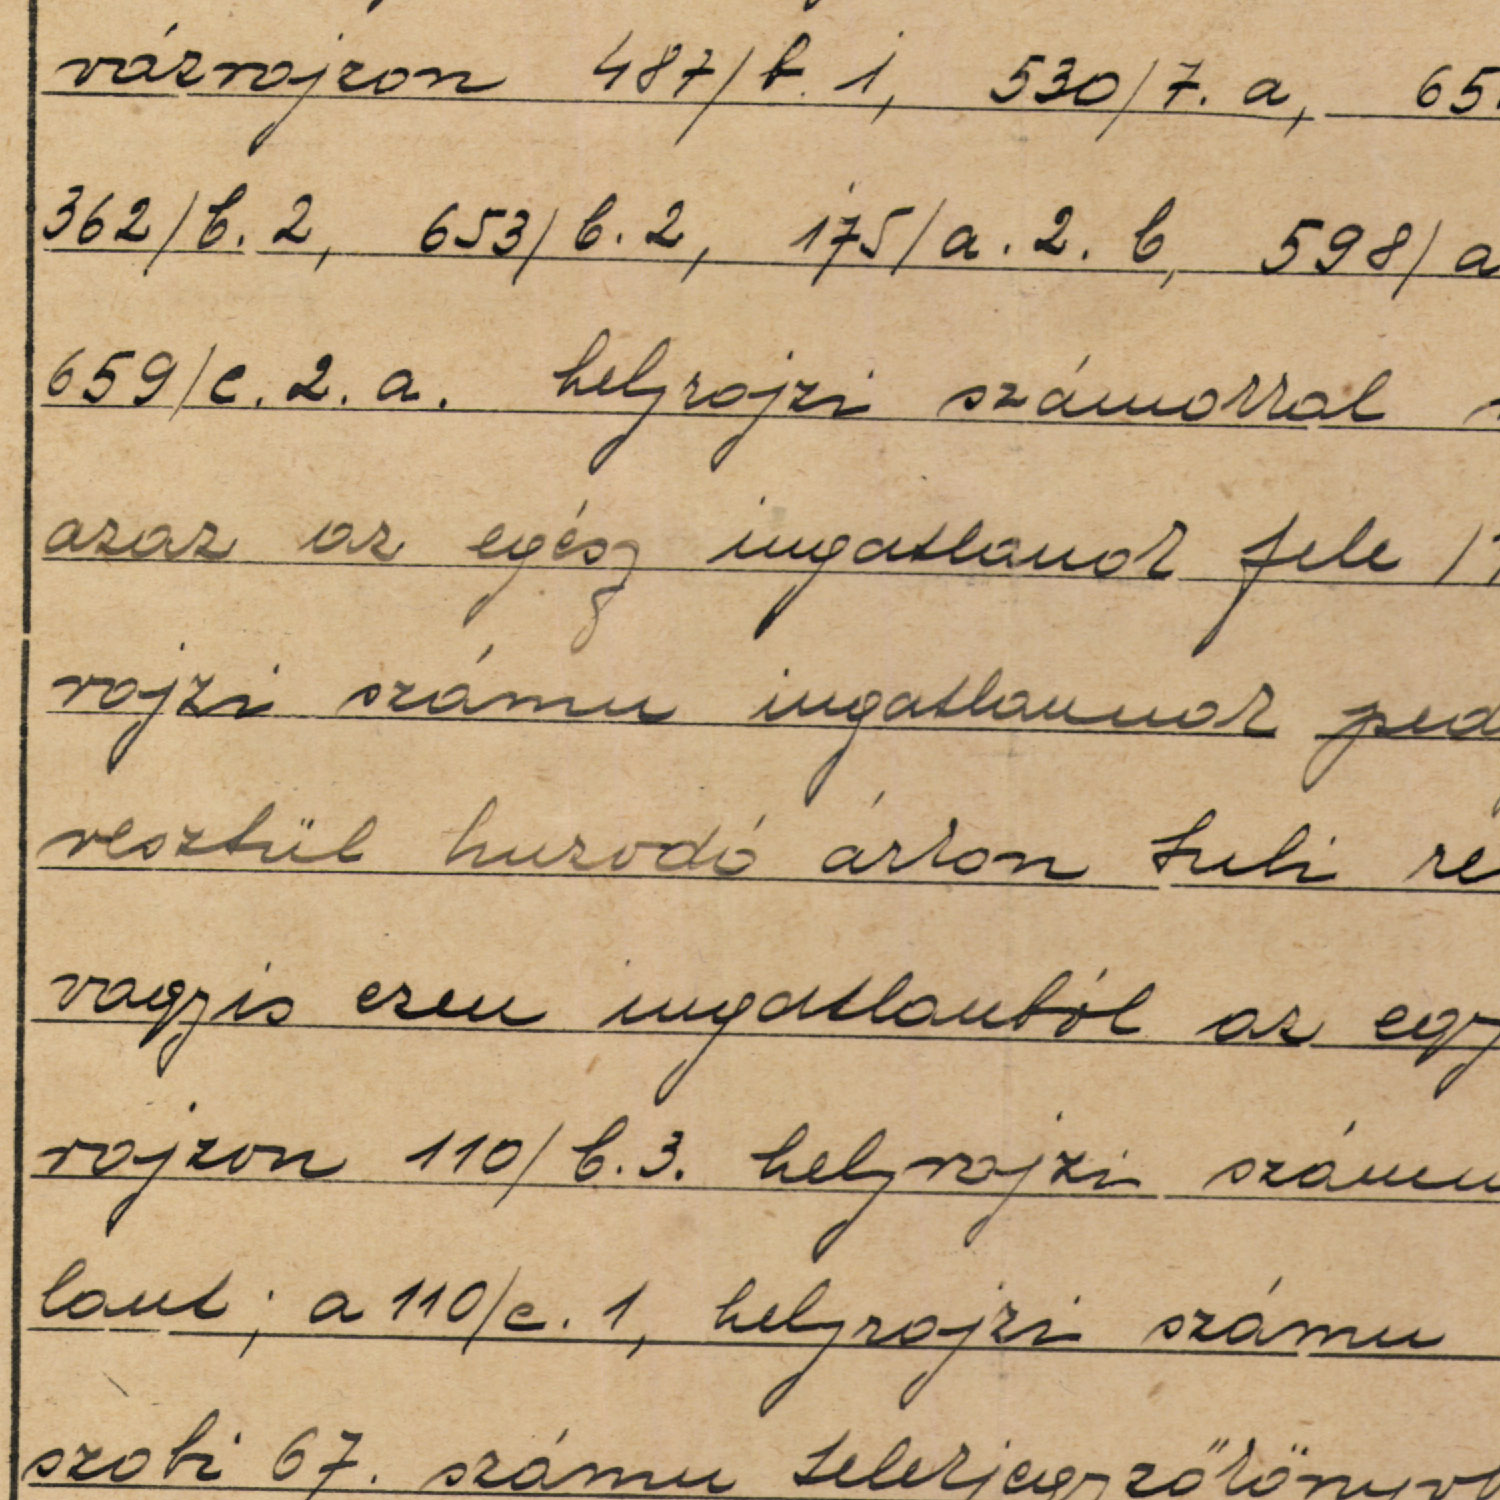 vázrajzon 487/b. 1, 530/7. a, 65
362/b. 2, 653/b. 2, 175/a. 2. b, 598/a
659/c. 2. a. helyrajzi számokkal
azaz az egész ingatlanok fele 1
rajzi számu ingatlannak ped
resztül huzodó árkon tuli ré
vagyis ezen ingatlanból az egy
rajzon 110/b. 3. helyrajzi számu
lant; a 110/c. 1, helyrajzi számu
szobi 67. számu telekjegyzőkönyvb